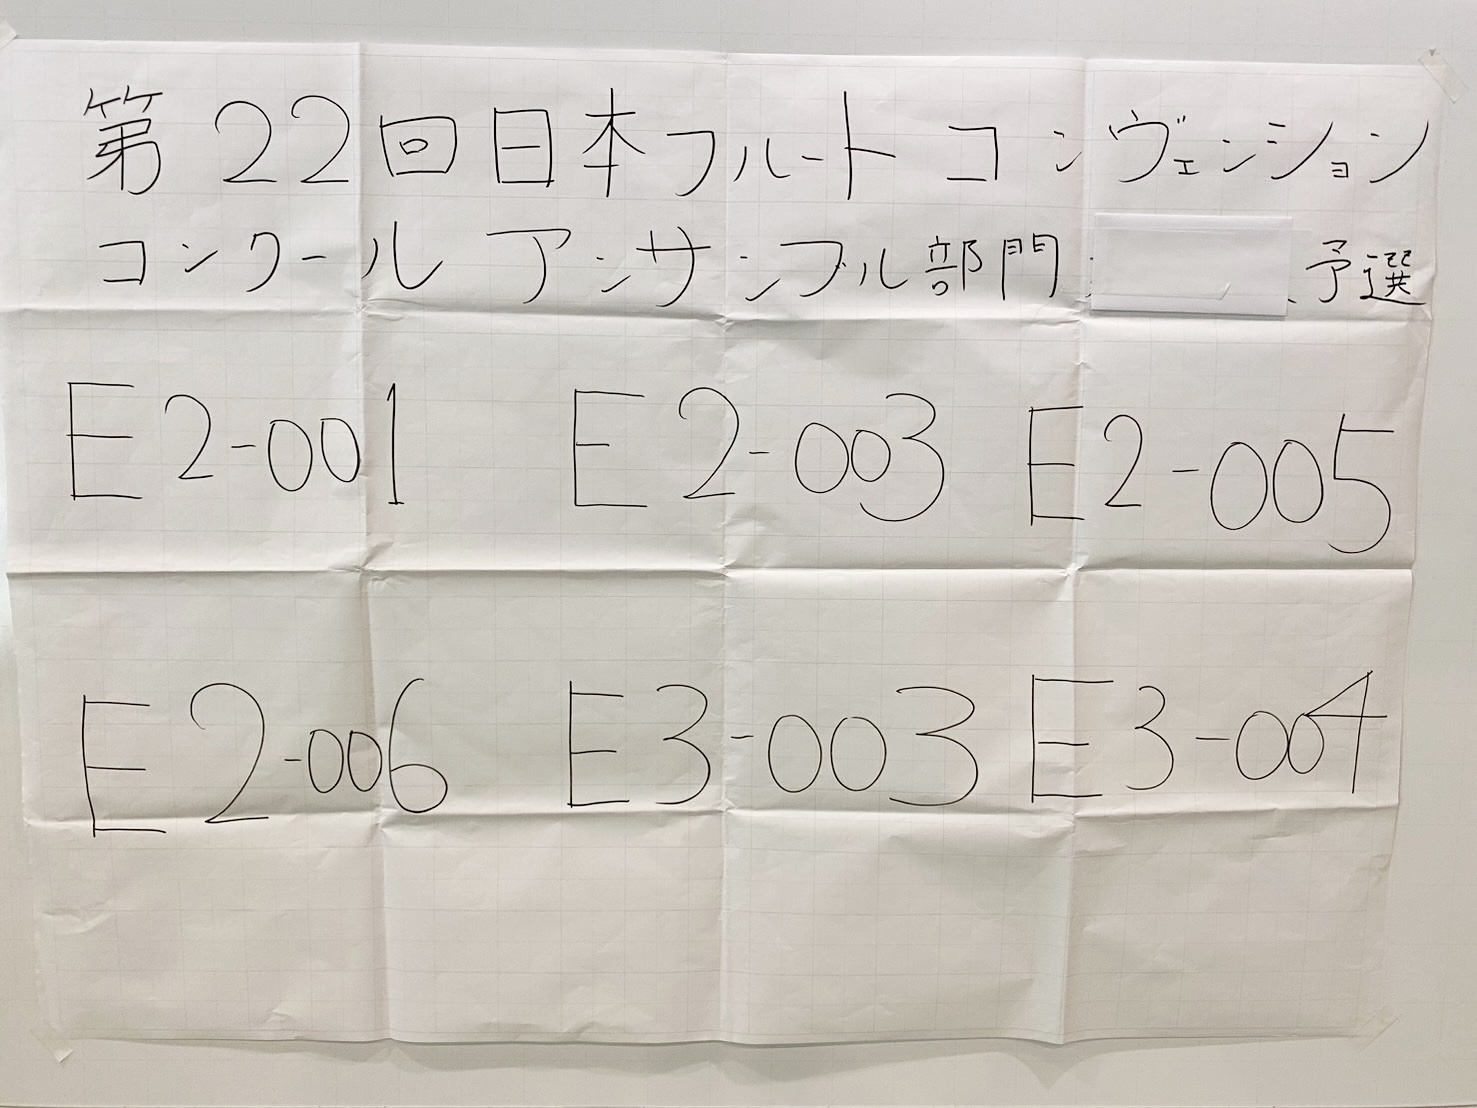 第22回日本フルートコンヴェンション
コンクール アンサンブル部門 予選
E2-001 E2-003 E2-005
E2-006 E3-003 E3-004